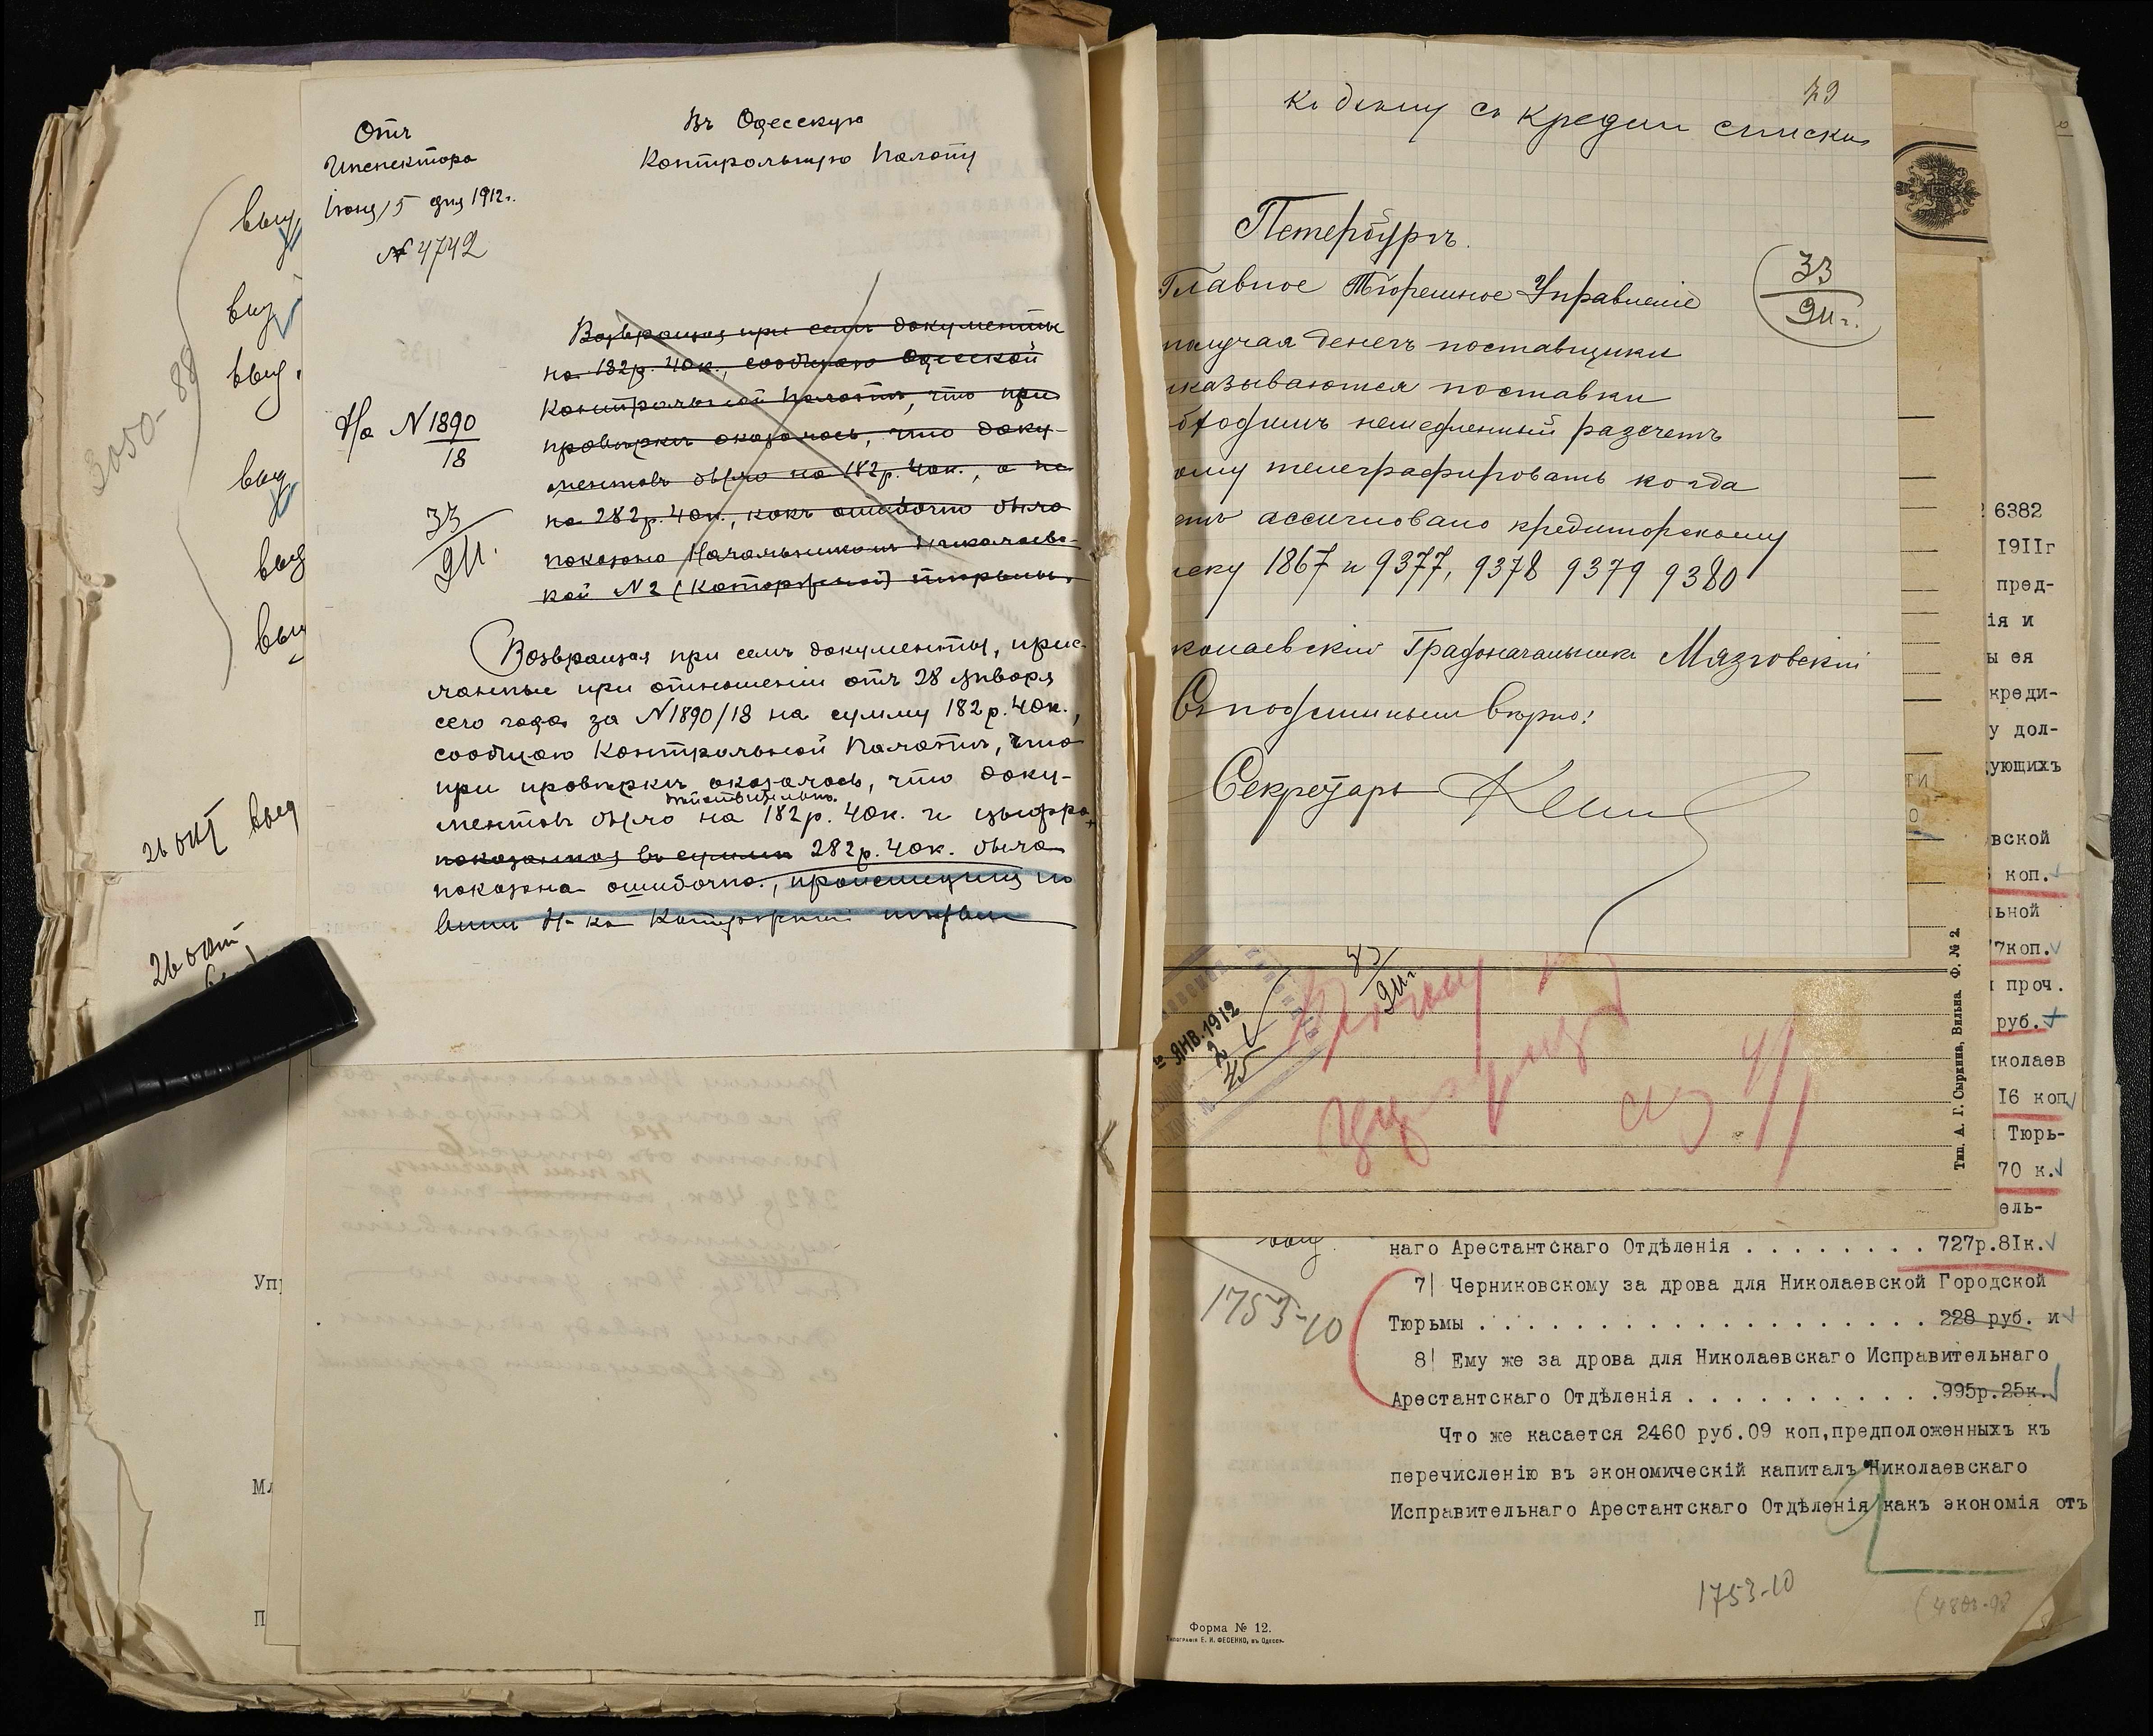 Отъ
Инспектора
Іюня 5 дня 1912г.
№ 4742
Въ Одесскую
Контрольную Палату
На № 1890
18
33
911.
Возвращая при семъ документы
на 182р. 40к., сообщаю Одесской
Контрольной Палатѣ, что при
провѣркѣ оказалось, что доку-
ментовъ было на 182р. 40к., а не
на 282р. 40к., какъ ошибочно было
показано Начальникомъ Николаевс-
кой №2 (Каторжной) тюрьмы.
Возвращая при семъ документы, прис-
ланные при отношеніи отъ 28 января
сего года за №1890/18 на сумму 182р. 40к.,
сообщаю Контрольной Палатѣ, что
при провѣркѣ оказалось, что доку-
дѣйствительно
ментовъ было на 182р. 40к. и цыфра
показанная въ суммѣ 282р. 40к. была
показана ошибочно, происшедшая по
винѣ Н-ка Каторжной тюрьм
3050-88
выд
выд
выд.
выд
выд
выд
26 окт выд
26 окт
Упр
Мл
П
49
Къ дѣлу съ кредит списками
Петербургъ.
33
911г.
Главное Тюремное Управленіе
получая денегъ поставщики
казываются поставки
бходимъ немедленный разсчетъ
ому телеграфировать когда
етъ ассигновано кредиторскому
ску 1867 и 9377, 9378 9379 9380
колаевскій Градоначальникъ Мязговскій
Съ подлиннымъ вѣрно:
Секретарь
33
911г.
ЯНВ. 1912
2
45
Тип. А. Г. Сыркина, Вильна. Ф. № 2.
6382
1911г
пред-
ія и
ы ея
креди-
у дол-
ующихъ
вской
коп.
ьной
7коп.
проч.
руб.
иколаев
16 коп
Тюрь-
70 к.
ель-
наго Арестантскаго Отдѣленія . . . . . . . . 727р.81к.
7| Черниковскому за дрова для Николаевской Городской
Тюрьмы . . . . . . . . . . . . . . . . . . . 228 руб. и
8| Ему же за дрова для Николаевскаго Исправительнаго
Арестантскаго Отдѣленія . . . . . . . . . . . .995р.25к.
Что же касается 2460 руб.09 коп,предположенныхъ къ
перечисленію въ экономическій капиталъ Николаевскаго
Исправительнаго Арестантскаго Отдѣленія какъ экономія отъ
1753-10
1753-10
Форма № 12.
Типографія Е. И. ФЕСЕНКО, въ Одессѣ.